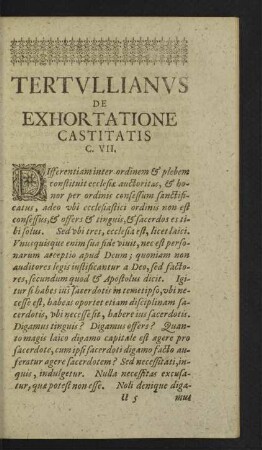 TERTVLLIANVS
DE
EXHORTATIONE
CASTITATIS
C. VII.
DIfferentiam inter ordinem & plebem
constituit ecclesiæ auctoritas, & ho-
nor per ordinis consessum sanctifi-
catus, adeo vbi ecclesiastici ordinis non est
consessus, & offers & tinguis, & sacerdos es ti-
bi solus. Sed vbi tres, ecclesia est, licet laici.
Vnusquisque enim sua fide vivit, nec est perso-
narum acceptio apud Deum; quoniam non
auditores legis iustificantur a Deo, sed facto-
res, secundum quod & Apostolus dicit. Igi-
tur si habes ius sacerdotis in temetipso, vbi ne-
cesse est, habeas oportet etiam disciplinam sa-
cerdotis, vbi necesse sit, habere ius sacerdotis.
Digamus tinguis? Digamus offers? Quan-
to magis laico digamo capitale est agere pro
sacerdote, cum ipsi sacerdoti digamo facto au-
feratur agere sacerdotem? Sed necessitati, in-
quis, indulgetur. Nulla necessitas excusa-
tur, quæ potest non esse. Noli denique diga-
U 5 mus